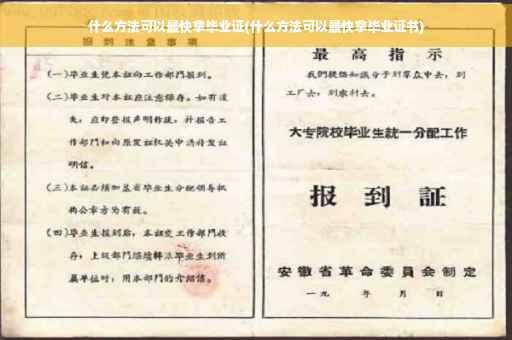 什么方法可以最快拿毕业证(什么方法可以最快拿毕业证书)
报到注意事项
(一)毕业生凭本证向工作部门报到。
(二)毕业生对本证应注意保存。如有遗
失，应即登报声明作废，并报告工
作部门和向原发证机关申请补发证
明信。
(三)本证必须加盖省毕业生分配领导机
构公章方为有效。
(四)毕业生报到后，本证交工作部门收
存；上级部门继续转派毕业生到所
属单位时，用本部门的介绍信。
最高指示
我们提倡知识分子到群众中去，到
工厂去，到农村去。
大专院校毕业生统一分配工作
报到証
安徽省革命委員会制定
一九 年 月 日